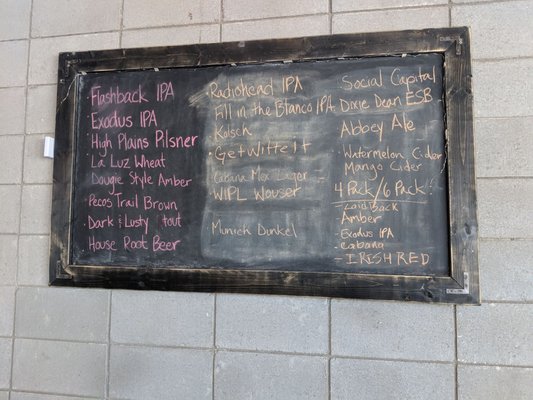 Flashback IPA
Exodus IPA
High Plains Pilsner
La Luz Wheat
Dougie Style Amber
Pecos Trail Brown
Dark & Lusty Stout
House Root Beer
Radiohead IPA
Fill in the Blanco IPA
Kolsch
Get Witte It
Cabana Mex Lager
WIPL Wouser
Munich Dunkel
Social Capital
Dixie Dean ESB
Abbey Ale
Watermelon Cider
Mango Cider
4 Pack/6 Pack!
- Laid Back
Amber
- Exodus IPA
- Cabana
- IRISH RED